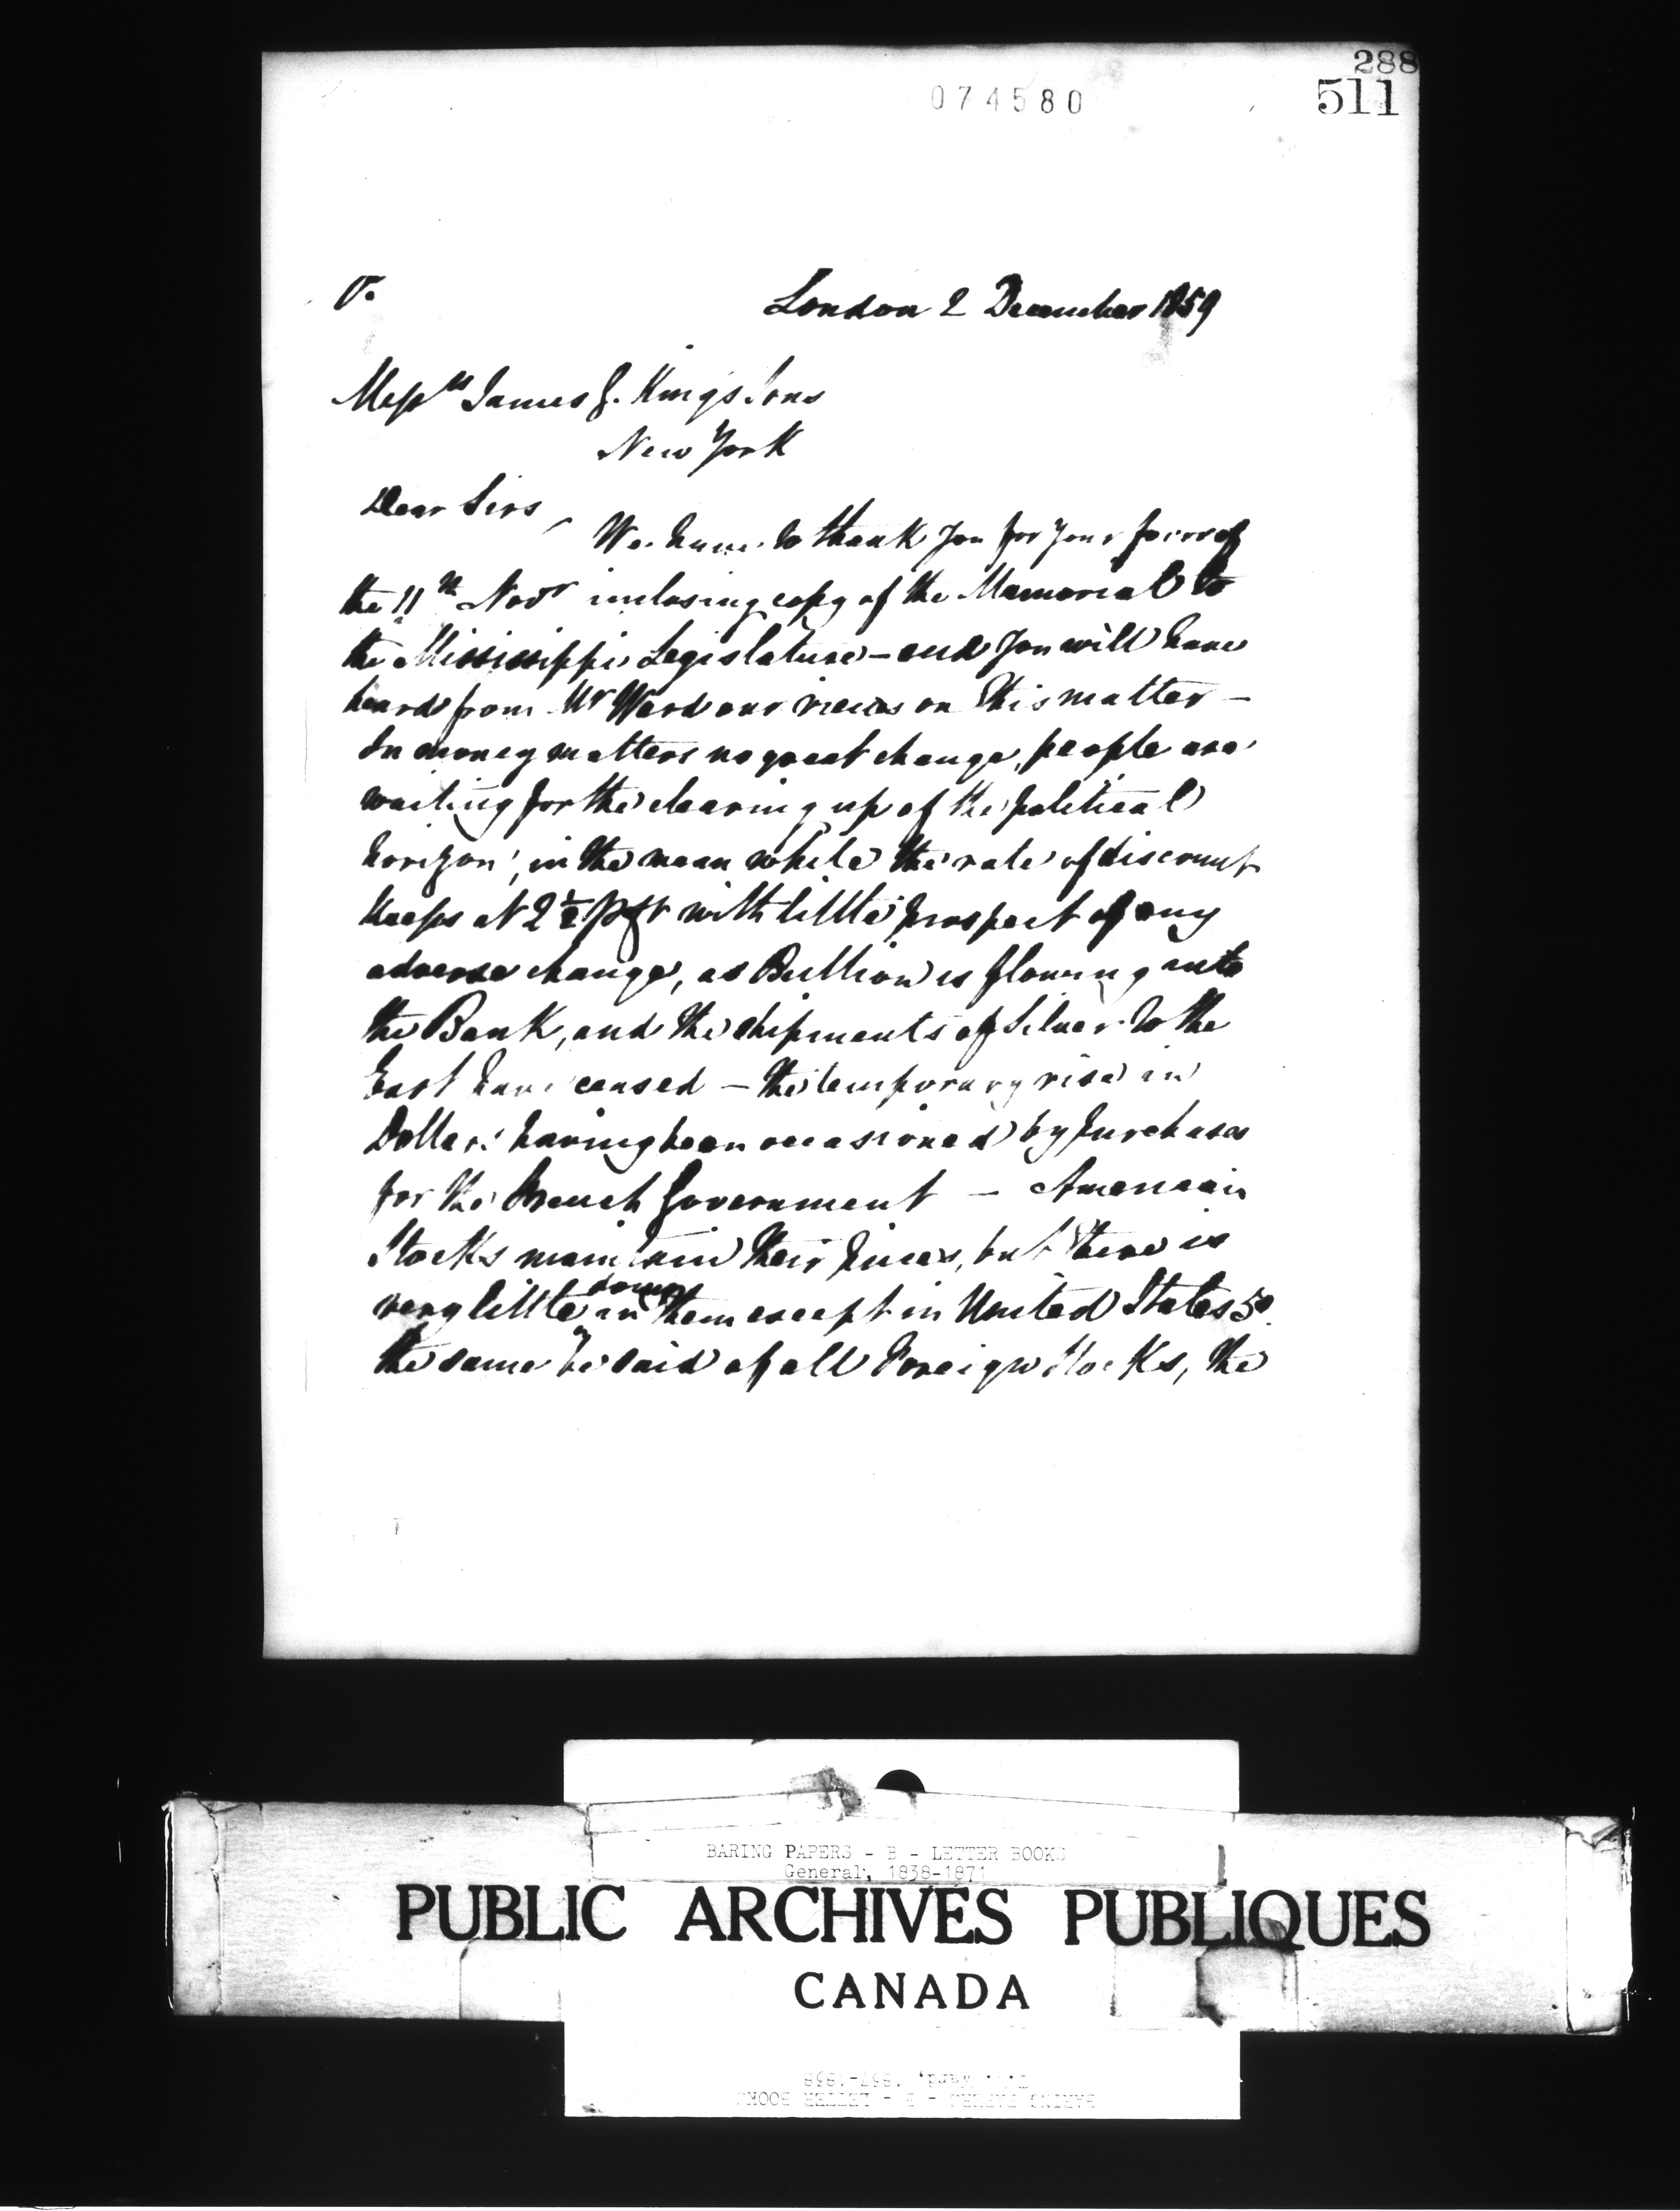 288
074580
511
London 2 December 1859
Mess<sup>rs</sup> James G. Kings Sons
New York
Dear Sirs,
We have to thank you for your favor of
the 11<sup>th</sup> Nov<sup>r</sup> inclosing copy of the Memorial to
the Mississippi Legislature – and you will have
heard from M<sup>r</sup> Ward our views on this matter –
In money matters no great change, people are
waiting for the clearing up of the political
horizon, in the mean while the rate of discount
keeps at 2½ p Ct with little prospect of any
adverse change, as Bullion is flowing into
the Bank, and the shipments of Silver to the
East have ceased – the temporary rise in
Dollars having been occasioned by purchases
for the French Government – American
Stocks maintain their prices, but there is
very little doing in them except in United States 5<sup>s</sup>.
the same be said of all Foreign Stocks, the
BARING PAPERS - B - LETTER BOOKS
General, 1838-1871
PUBLIC ARCHIVES PUBLIQUES
CANADA
Ward, 1837-1838
BARING PAPERS - B - LETTER BOOKS